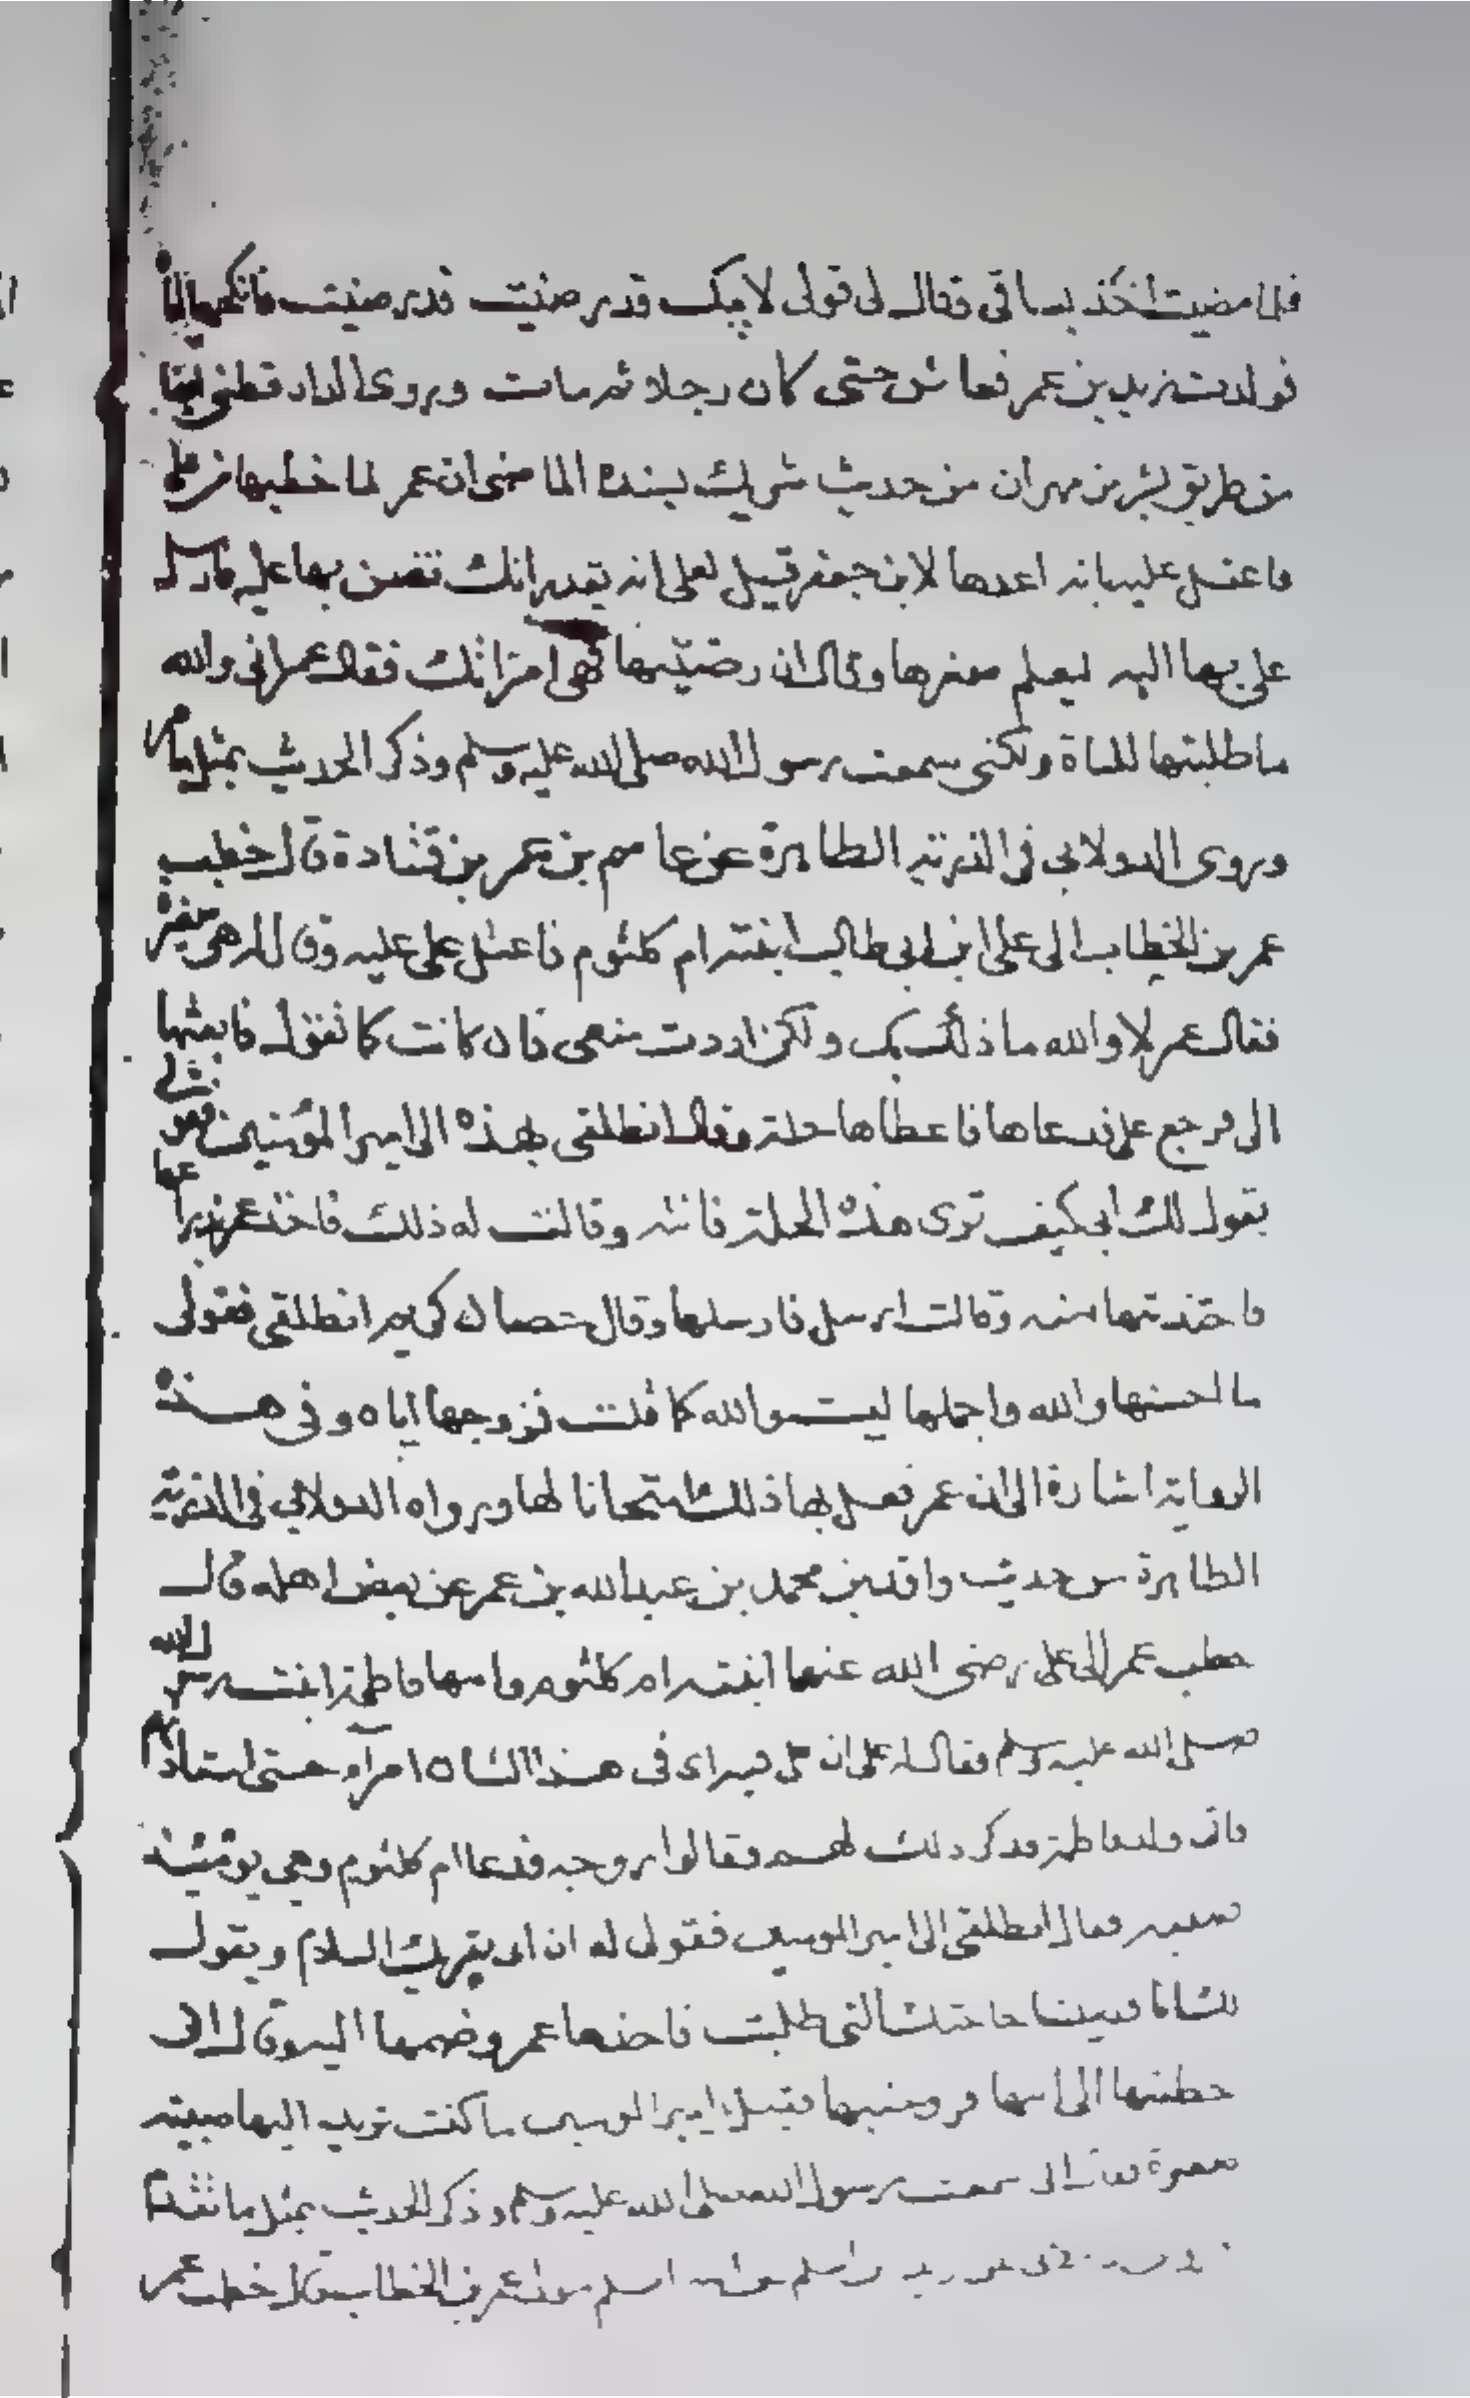 فلما مضيت اخذ بساقى وقال لى قولى لابيك قد رضيت قد رضيت فانكحها اياه
فولدت زيد بن عمر فعاش حتى كان رجلا ثم مات وروى الدارقطنى ايضا
من طريق بشر بن مهران من حديث شريك بسنده الماضى ان عمر لما خطبها من على
فاعتل عليه بانه اعدها لابن جعفر قيل لعلى انه يقدر انك تضن بها عليه فارسل
على بها اليه ليعلم صغرها وقال ان رضيتها فهى امراتك فقال عمر انى والله
ما طلبتها للباة ولكنى سمعت رسول الله صلى الله عليه وسلم وذكر الحديث بمثل ما مر
وروى الدولابى فى الذرية الطاهرة عن عاصم بن عمر بن قتادة قال خطب
عمر بن الخطاب الى على ابن ابى طالب ابنته ام كلثوم فاعتل على عليه وقال له هى صغيرة
فقال عمر لا والله ما ذلك بك ولكن اردت منعى فان كانت كما تقول فابعثها
الى فرجع على فدعاها فاعطاها حلة وقال انطلقى بهذه الى امير المؤمنين فقولى
يقول لك ابى كيف ترى هذه الحلة فاتته وقالت له ذلك فاخذ عمر بذراعها
فاجتذبتها منه وقالت ارسل فارسلها وقال حصان كريم انطلقى فقولى
ما احسنها والله واجملها ليست والله كما قلت فزوجها اياه وفى هذه
الرواية اشارة الى ان عمر فعل بها ذلك امتحانا لها ورواه الدولابى فى الذرية
الطاهرة من حديث واقد بن محمد بن عبد الله بن عمر عن بعض اهله قال
خطب عمر الى على رضى الله عنهما ابنته ام كلثوم وامها فاطمة ابنت رسول الله
صلى الله عليه وسلم فقال له على ان على فيه امراء فى هذا الشان امرآء حتى استاذنهم
فاتى ولد فاطمة فذكر ذلك لهم فقالوا زوجه فدعا ام كلثوم وهى يومئذ
صبية فقال انطلقى الى امير المومنين فقولى له ان ابى يقريك السلام ويقول
لك انا قد قضينا حاجتك التى طلبت فاخذها عمر وضمها اليه وقال انى
خطبتها الى ابيها فزوجنيها فقيل يا امير المومنين ما كنت تريد اليها صبية
صغيرة فقال انى سمعت رسول الله صلى الله عليه وسلم وذكر الحديث بمثل ما تقدم
زيد بن اسلم عن ابيه اسلم مولى عمر بن الخطاب قال خطب عمر